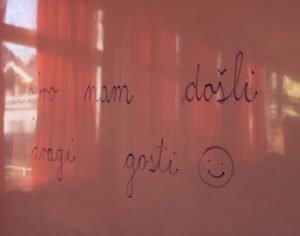 nam došli
dragi gosti